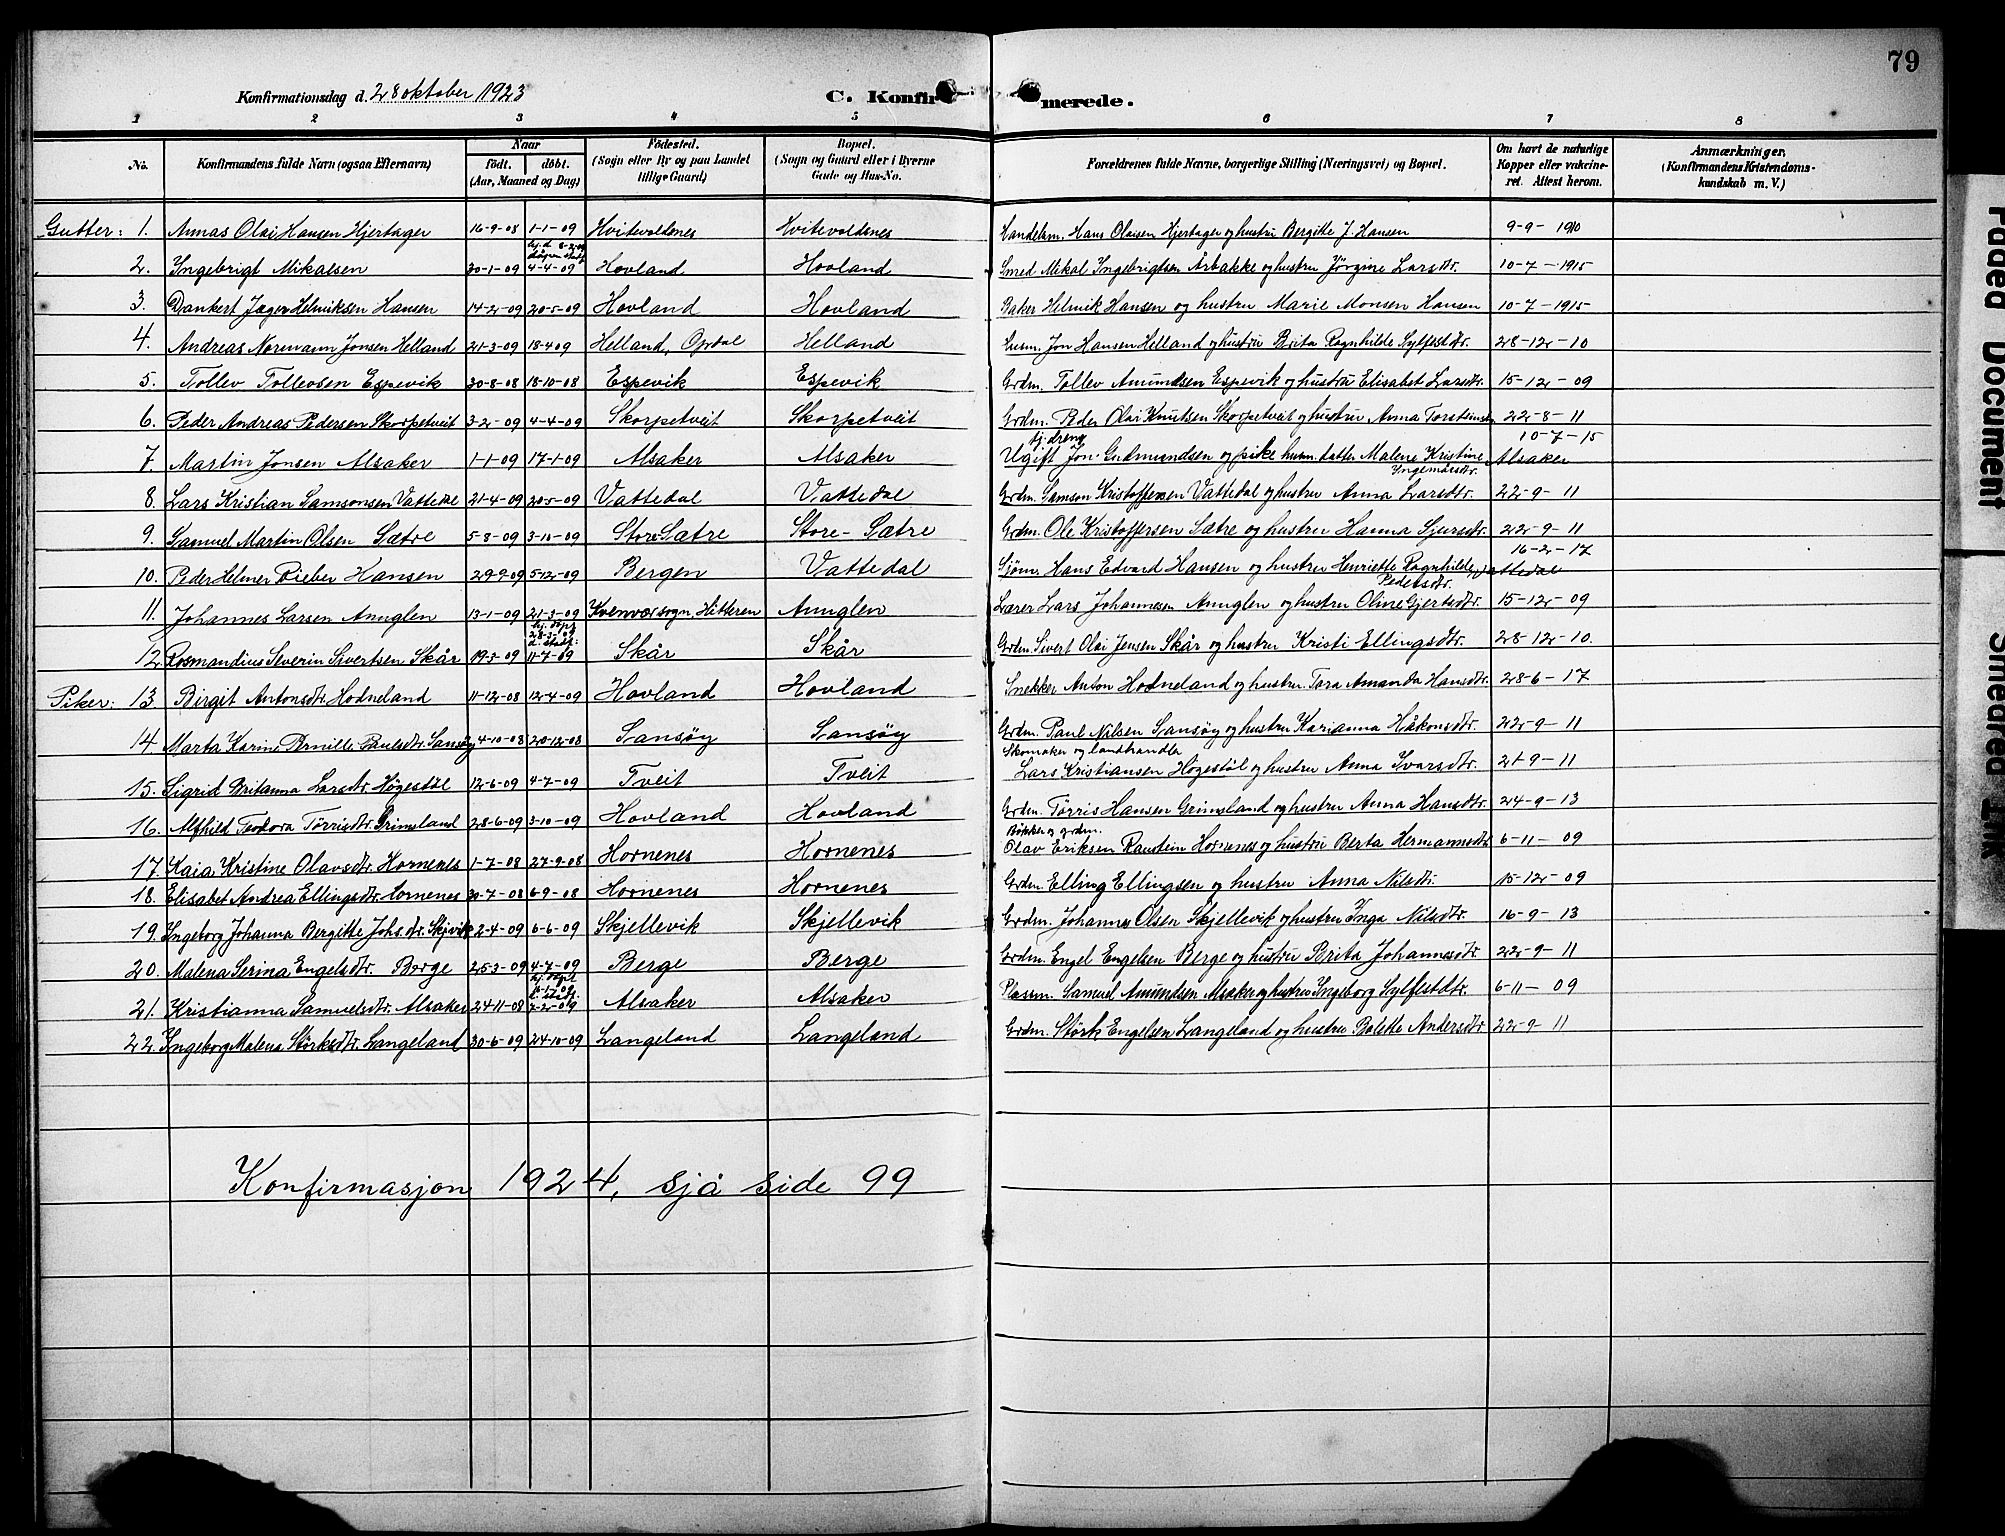 79
Konfirmationsdag d. 28 oktober 1923
C. Konfirmerede.
1 2 3 4 5 6 7 8
No. Konfirmandens fulde Navn (ogsaa Efternavn) Naar født. døbt. (Aar, Maaned og Dag) Fødested. (Sogn eller By og paa Landet tillige Gaard) Bopæl. (Sogn og Gaard eller i Byerne Gade og Hus-No. Forældrenes fulde Navne, borgerlige Stilling (Næringsvei) og Bopæl. Om havt de naturlige Kopper eller vakcineret. Attest herom. Anmærkninger, (Konfirmandens Kristendomskundskab m. V.)
Gutter: 1. Annas Olai Hansen Hjertager 16-9-08 1-1-09 Hvitevoldenes Hvitevoldenes Handelsm. Hans Olaisen Hjertager og hustru Bergitte J. Hansen 9-9-1910
2. Ingebrigt Mikalsen 30-1-09 4-4-09 Hovland Hovland Smed Mikal Ingebrigtsen Årbakke og hustru Jørgine Larsdtr. 10-7-1915
3. Dankert Jæger Helmiksen Hansen 14-2-09 20-5-09 Hovland Hovland Baker Helmik Hansen og hustru Marie Monsen Hansen 10-7-1915
4. Andreas Normann Jonsen Helland 21-3-09 18-4-09 Helland, Opdal Helland Husm. Jon Hansen Helland og hustru Brita Ragnhilde Sylfestdtr. 28-12-10
5. Tollev Tollevsen Espevik 30-8-08 18-10-08 Espevik Espevik Grdm. Tollev Amundsen Espevik og hustru Elisabet Larsdtr. 15-12-09
6. Peder Andreas Pedersen Skorpetveit 3-2-09 4-4-09 Skorpetveit Skorpetveit Grdm. Peder Olai Knutsen Skorpetveit og hustru Anna Torsteinsdtr 22-8-11
7. Martin Jonsen Alsaker 1-1-09 17-1-09 Alsaker Alsaker Ugift tj.dreng Jon Gudmundsen og pike husm. datter Malene Kristine Ingemårsdtr. Alsaker 10-7-15
8. Lars Kristian Samsonsen Vattedal 21-4-09 20-5-09 Vattedal Vattedal Grdm. Samson Kristoffersen Vattedal og hustru Anna Larsdtr. 22-9-11
9. Samuel Martin Olsen Sætre 5-8-09 3-10-09 Store Sætre Store-Sætre Grdm. Ole Kristoffersen Sætre og hustru Hanna Sjursdtr. 22-9-11
10. Peder Helmer Rieber Hansen 29-9-09 5-12-09 Bergen Vattedal Sjøm. Hans Edvard Hansen og hustru Henriette Ragnhilde Pedersdtr. Vattedal 16-2-17
11. Johannes Larsen Annglen 13-1-09 21-3-09 Kvenvær sogn, Hitteren Annglen Lærer Lars Johannesen Annglen og hustru Oline Gjertsdtr. 15-12-09
12. Rosmandius Severin Sivertsen Skår 19-3-09 11-7-09 Skår Skår Grdm. Sivert Olai Jensen Skår og hustru Kristi Ellingsdtr. 28-12-10.
Piker: 13 Birgit Antonsdtr. Hodneland 11-12-08 12-4-09 Hovland Hovland Snekker Anton Hodneland og hustru Tora Amanda Hansdtr. 28-6-17
14. Marta Karine Pernille Paulsdtr. Sansøy 4-10-08 20-12-08 Sansøy Sansøy Grdm. Paul Nilsen Sansøy og hustru Karianna Håkonsdtr. 22-9-11
15. Sigrid Britanna Larsdtr. Høgestøl 12-6-09 4-7-09 Tveit Tveit Skomaker og landhandler Lars Kristiansen Høgestøl og hustru Anna Ivarsdtr. 21-9-11
16. Alfhild Teodora Tørrisdtr. Grimsland 28-6-09 3-10-09 Hovland Hovland Grdm. Tørris Hansen Grimsland og hustru Anna Hansdtr. 24-9-13
17. Kaia Kristine Olavsdtr. Hornenes 1-7-08 27-9-08 Hornenes Hornenes Bøkker og grdm. Olav Eriksen Raustein Hornenes og hustru Berta Hermannsdtr 6-11-09
18. Elisabet Andrea Ellingsdtr. Hornenes 30-7-08 6-9-08 Hornenes Hornenes Grdm. Elling Ellingsen og hustru Anna Nilsdtr. 15-12-09
19. Ingeborg Johanna Bergitte Johs.dtr. Skjvik 2-4-09 6-6-09 Skjellevik Skjellevik Grdm. Johannes Olsen Skjellevik og hustru Inga Nilsdtr. 16-9-13
20. Malena Serina Engelsdtr. Berge 25-3-09 4-7-09 Berge Berge Grdm. Engel Engelsen Berge og hustru Brita Johannesdtr. 22-9-11
21. Kristianna Samuelsdtr. Alsaker 24-11-08 7-2-09 Alsaker Alsaker Plassm. Samuel Amundsen Alsaker og hustru Ingeborg Sylfestdtr. 6-11-09
22. Ingeborg Malena Størksdtr. Langeland 30-6-09 24-10-09 Langeland Langeland Grdm. Størk Engelsen Langeland og hustru Bolette Andersdtr. 22-9-11
Konfirmasjon 1924, sjå side 99
Faded Document
Smeared Ink